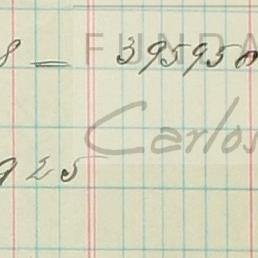 8 — 39595
FUNDA
Carlos
925